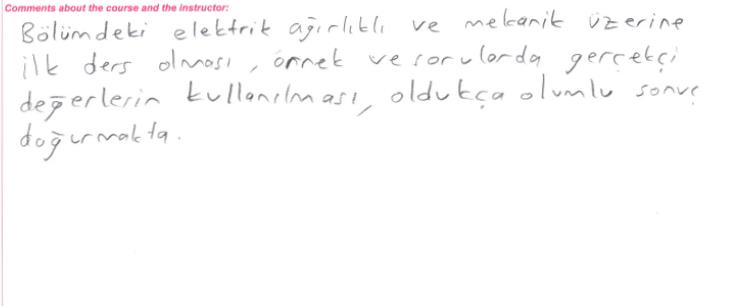 Comments about the course and the instructor:
Bölümdeki elektrik ağırlıklı ve mekanik üzerine
ilk ders olması, örnek ve sorularda gerçekçi
değerlerin kullanılması, oldukça olumlu sonuç
doğurmakta.